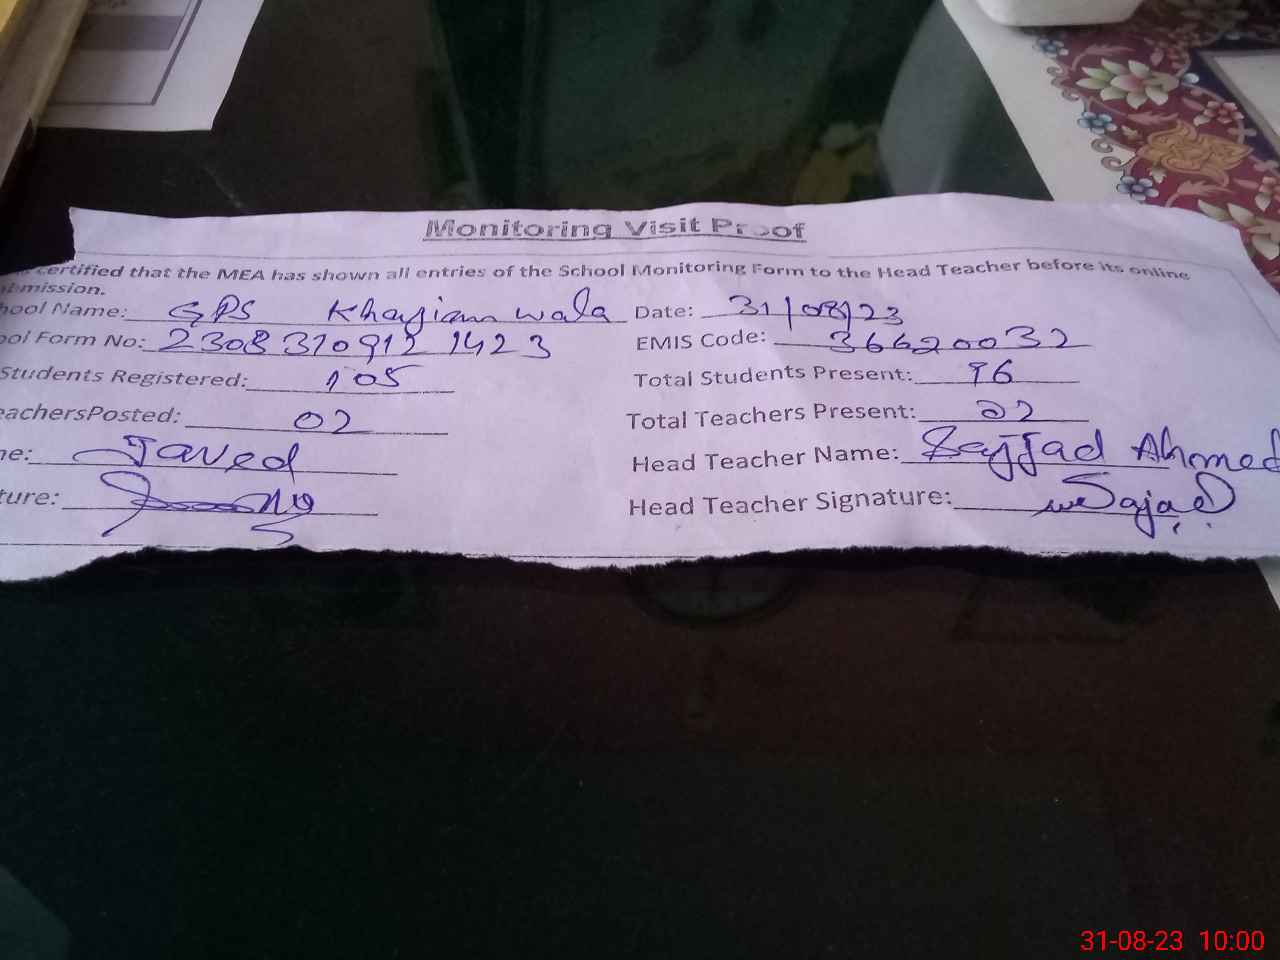 Monitoring Visit Proof
certified that the MEA has shown all entries of the School Monitoring Form to the Head Teacher before its online
bmission.
hool Name: GPS Khajianwala Date: 31/08/23
ool Form No: 2308310912 1423 EMIS Code: 36620032
Students Registered: 105 Total Students Present: 96
eachersPosted: 02 Total Teachers Present: 02
ne: Javed Head Teacher Name: Sajjad Ahmed
ture: Head Teacher Signature: Sajad
31-08-23 10:00